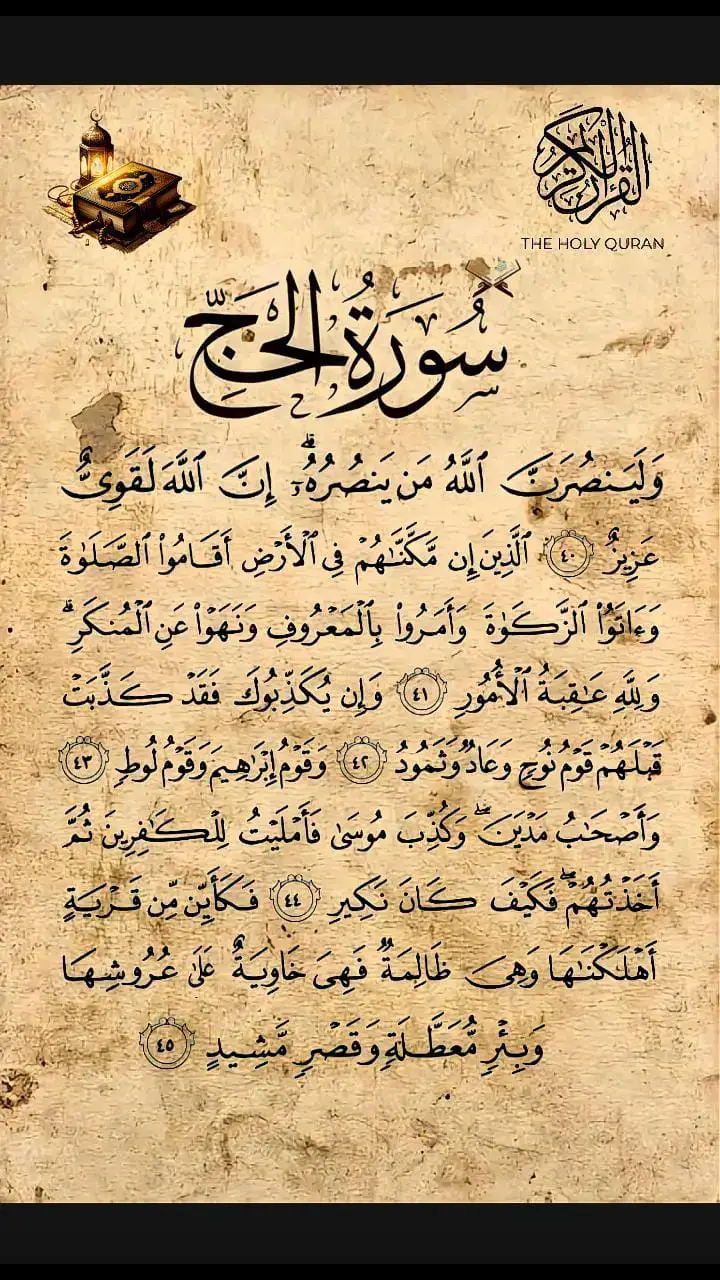 القرآن الكريم
THE HOLY QURAN
سُورَةُ الحَجِّ
وَلَيَنصُرَنَّ ٱللَّهُ مَن يَنصُرُهُۥٓۗ إِنَّ ٱللَّهَ لَقَوِىٌّ
عَزِيزٌ ٤٠ ٱلَّذِينَ إِن مَّكَّنَّٰهُمْ فِى ٱلْأَرْضِ أَقَامُوا۟ ٱلصَّلَوٰةَ
وَءَاتَوُا۟ ٱلزَّكَوٰةَ وَأَمَرُوا۟ بِٱلْمَعْرُوفِ وَنَهَوْا۟ عَنِ ٱلْمُنكَرِۗ
وَلِلَّهِ عَٰقِبَةُ ٱلْأُمُورِ ٤١ وَإِن يُكَذِّبُوكَ فَقَدْ كَذَّبَتْ
قَبْلَهُمْ قَوْمُ نُوحٍ وَعَادٌ وَثَمُودُ ٤٢ وَقَوْمُ إِبْرَٰهِيمَ وَقَوْمُ لُوطٍ ٤٣
وَأَصْحَٰبُ مَدْيَنَۖ وَكُذِّبَ مُوسَىٰ فَأَمْلَيْتُ لِلْكَٰفِرِينَ ثُمَّ
أَخَذْتُهُمْۖ فَكَيْفَ كَانَ نَكِيرِ ٤٤ فَكَأَيِّن مِّن قَرْيَةٍ
أَهْلَكْنَٰهَا وَهِىَ ظَالِمَةٌ فَهِىَ خَاوِيَةٌ عَلَىٰ عُرُوشِهَا
وَبِئْرٍ مُّعَطَّلَةٍ وَقَصْرٍ مَّشِيدٍ ٤٥